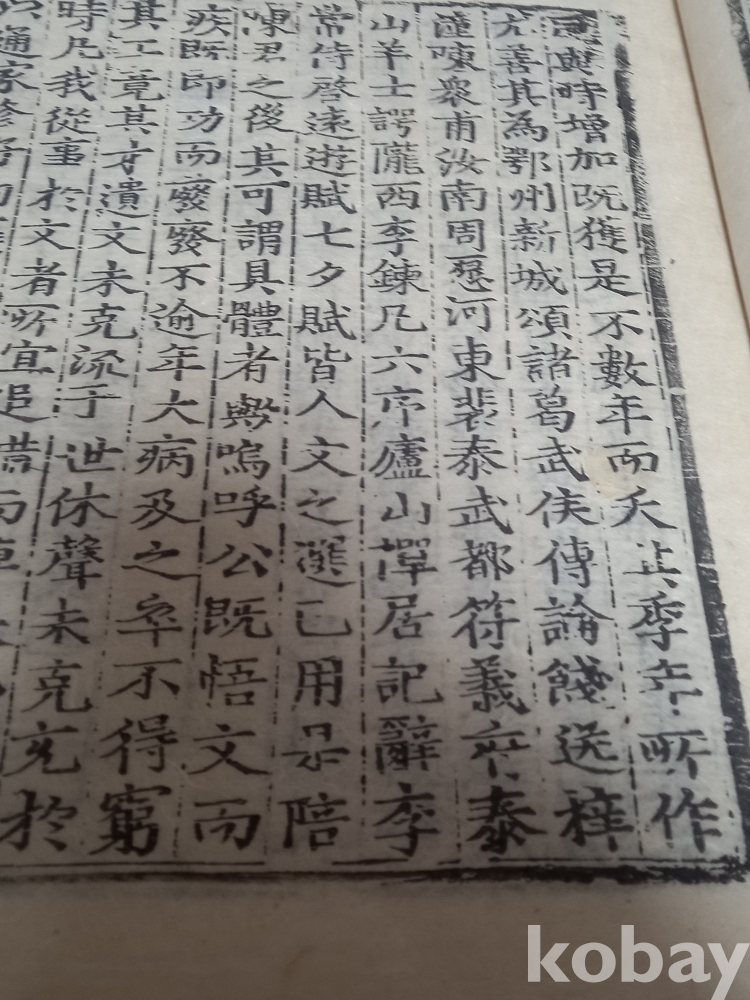 與時增加既獲是不數年而夭其季年所作
尤善其為鄂州新城頌諸葛武侯傳論餞送梓
潼陳衆甫汝南周愿河東裴泰武都符義府泰
山羊士諤隴西李鍊凡六序廬山禪居記辭李
常侍啓遠遊賦七夕賦皆人文之選已用是陪
陳君之後其可謂具體者歟嗚呼公既悟文而
疾既即功而廢廢不逾年大病及之卒不得窮
其工竟其才遺文未克流于世休聲未克充於
時凡我從事於文者所宜追惜而
通家修好
kobay